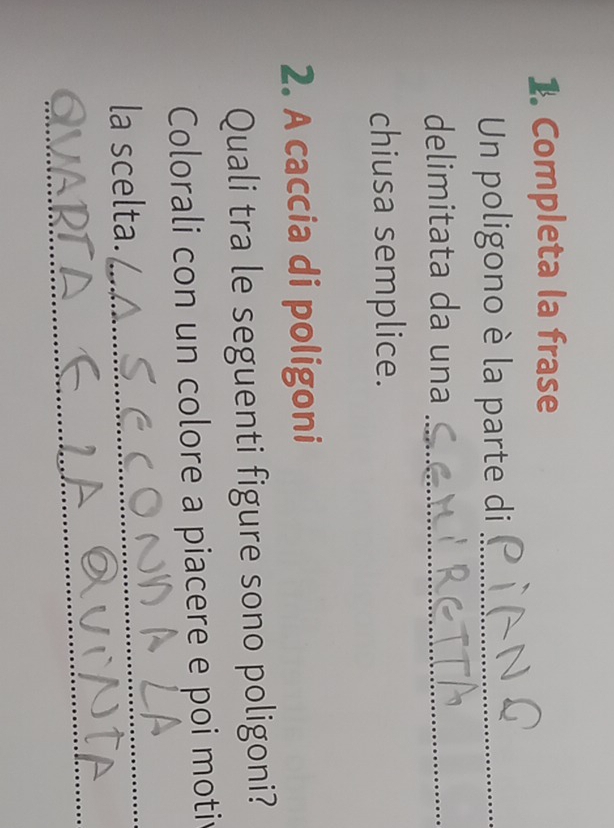 1. Completa la frase
Un poligono è la parte di PIANO
delimitata da una SEMIRETTA
chiusa semplice.
2. A caccia di poligoni
Quali tra le seguenti figure sono poligoni?
Colorali con un colore a piacere e poi motiv
la scelta. LA SECONDA LA
QUARTA E LA QUINTA